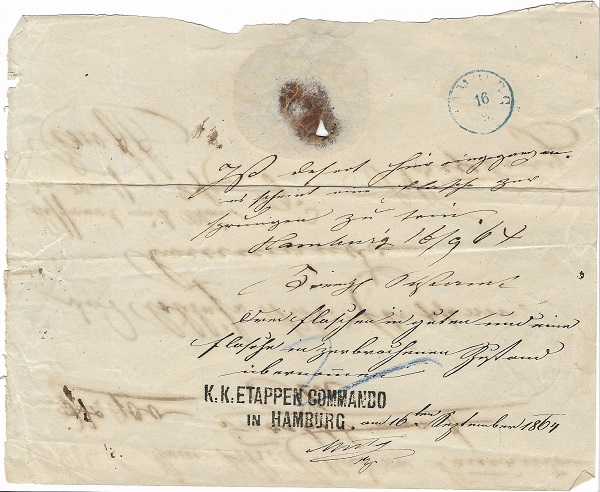 HAMBURG
16
9
Ist defect hier eingegangen.
es scheint eine Flasche zer
sprungen zu sein
Hamburg 16/9 64
Drei Flaschen in guten und eine
Flasche in zerbrochenen Zustand
übernommen
K.K. ETAPPEN COMMANDO
IN HAMBURG. am 16ten September 1864